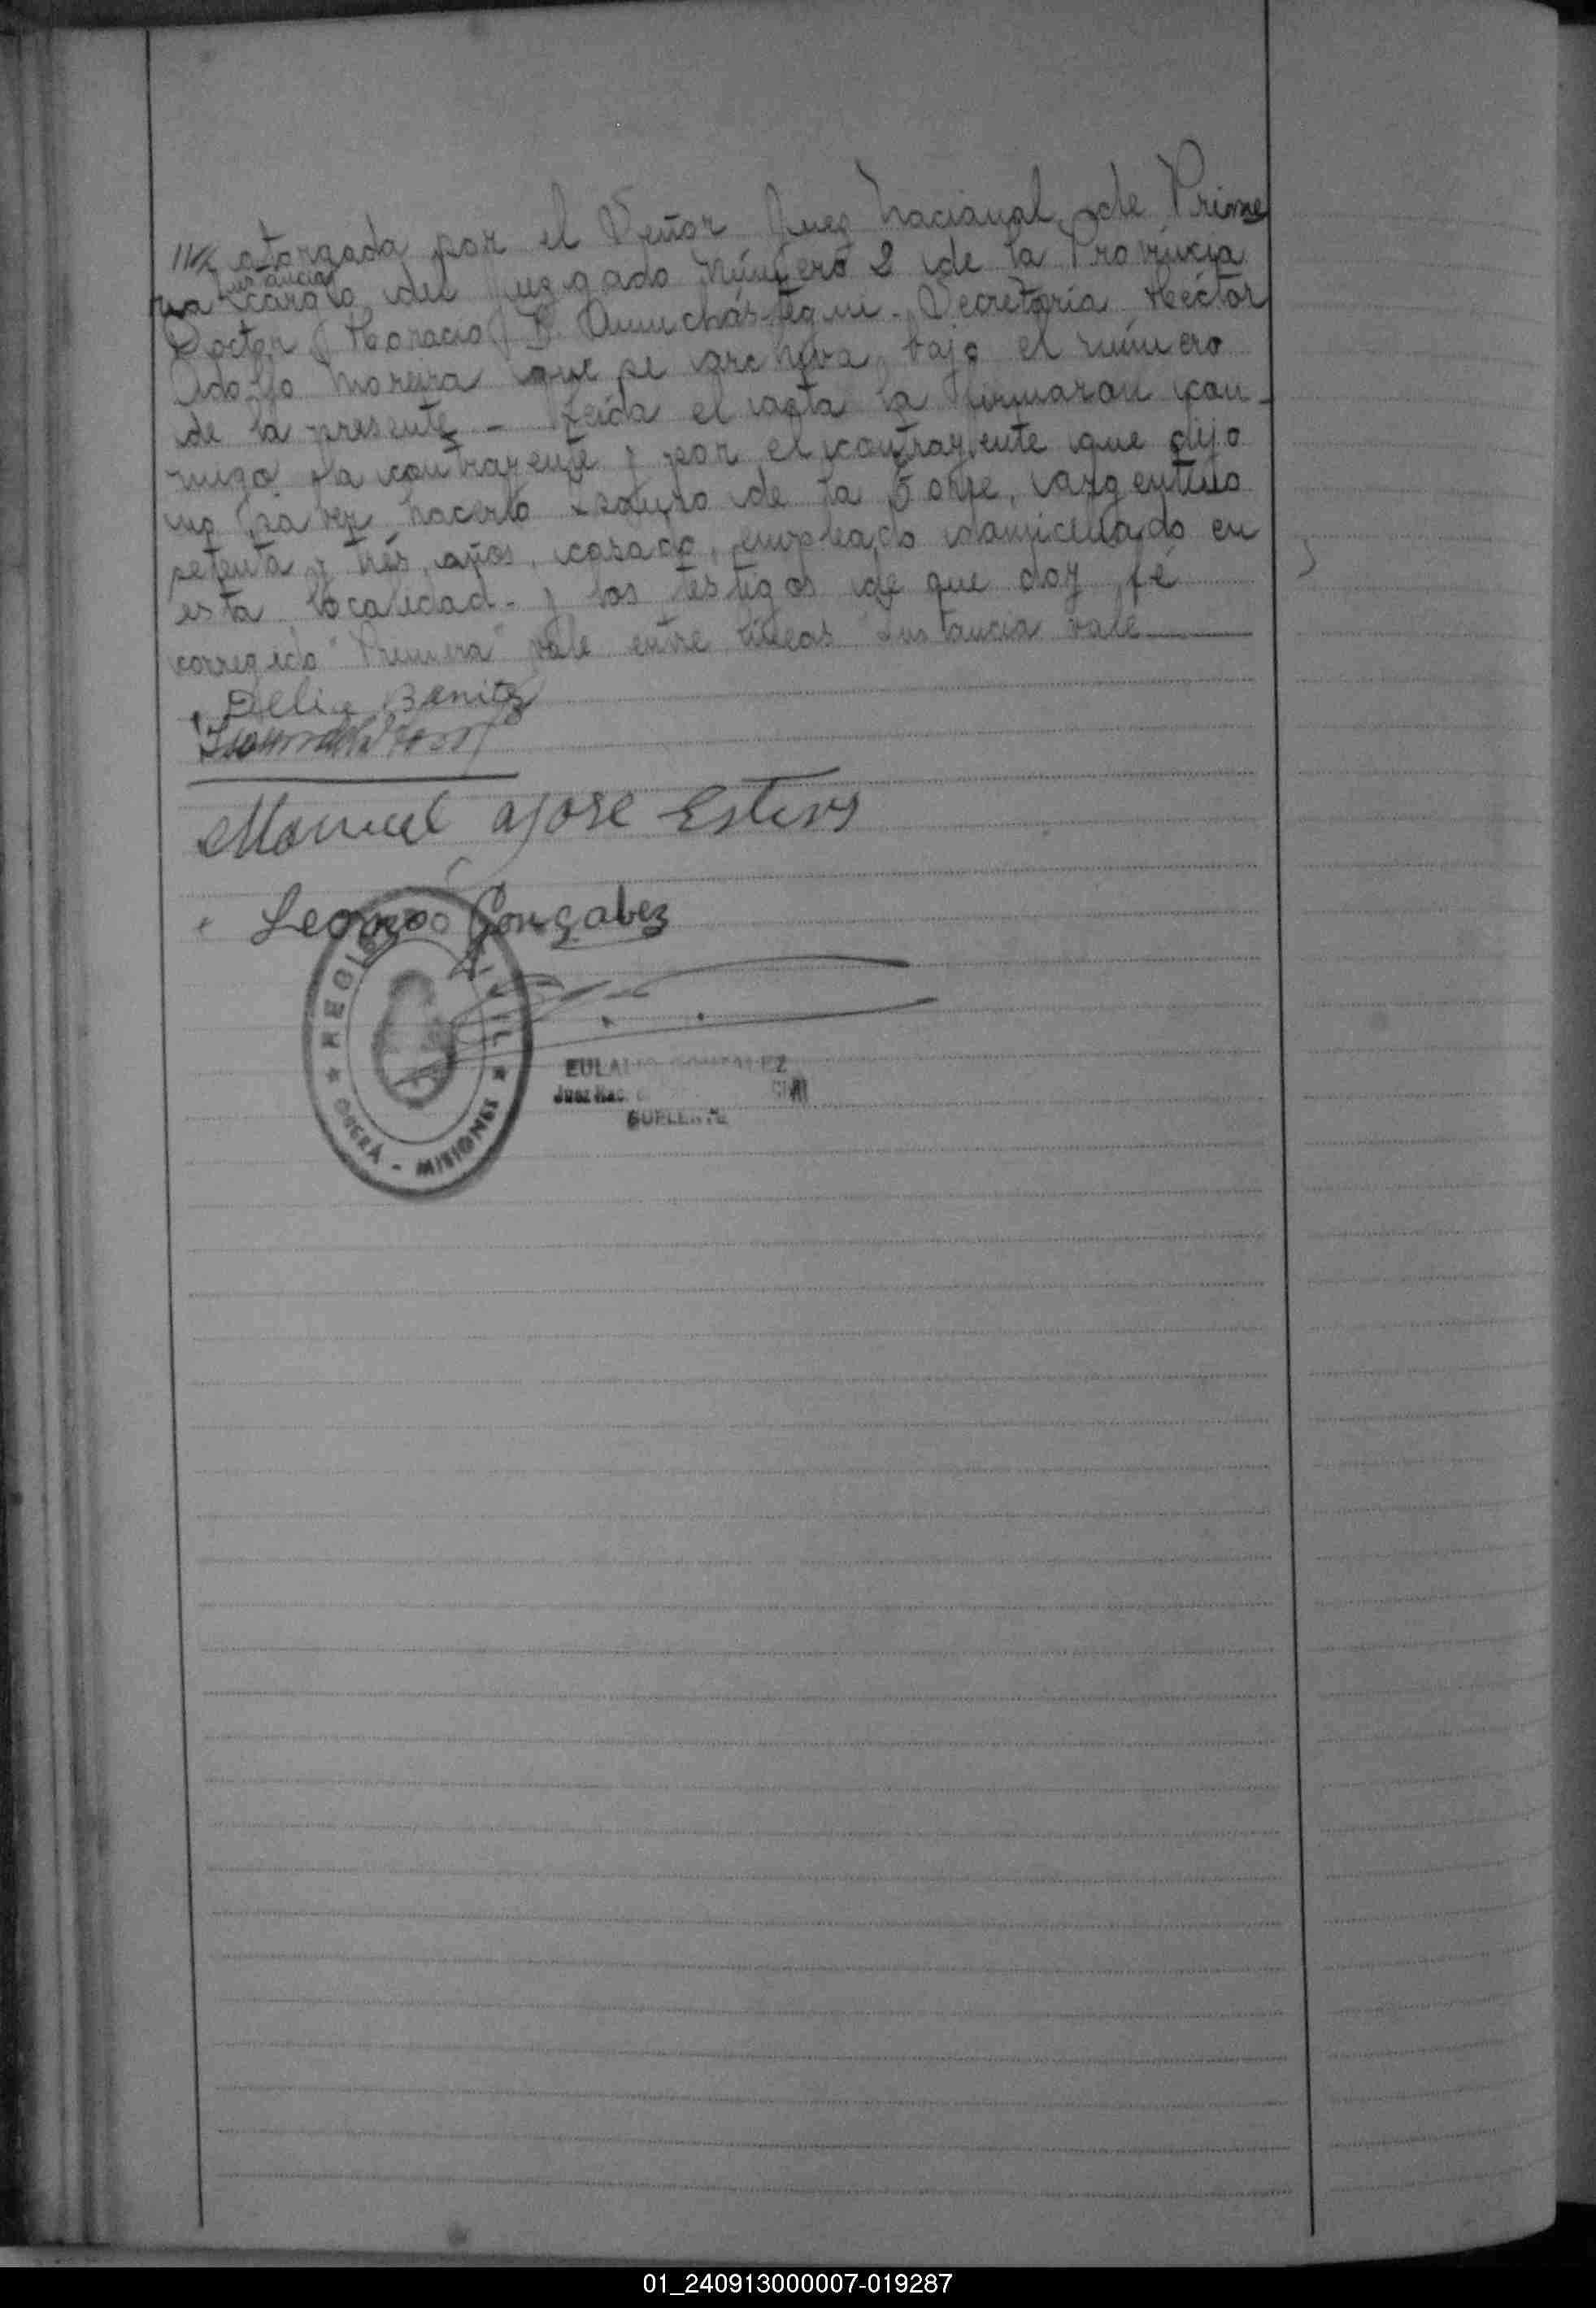 otorgada por el Señor Juez Nacional de Prime
ra Instancia a cargo del Juzgado Número 2 de la Provincia
Doctor Horacio B. Anuchástegui - Secretaría Héctor
Adolfo Moreira que se archiva bajo el número
de la presente - Leída el acta la firmaron con-
migo la contrayente y por el contrayente que dijo
no saber hacerlo de la Torre, argentino
setenta y tres años, casado, empleado domiciliado en
esta localidad - y los testigos de que doy fé
corregido "Primera" vale entre líneas "Instancia" vale
Delia Benitez
Manuel Jose
Gonzalez
REGISTRO CIVIL
OBERÁ - MISIONES
Juez Nac.
SUPLENTE
01_240913000007-019287